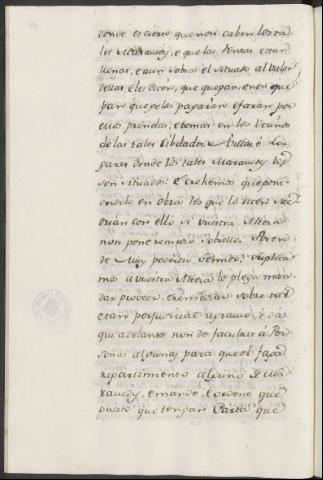 donde es cierto que non caben los ta-
les Maravedis, e que las Rentas estan
llenas, e aun sobra el situado al valor
dellas, e les dicen, que quepan, o non que-
pan que gelos pagaran e facen por
ello prendas, e toman en los Vecinos
de las tales Cibdades, e Villas, o Lo-
gares donde los tales Maravedis
son situados: E crehemos que ponien-
dolo en obra los que lo dicen
con ello si vuestra Alteza
non pone remedio sobrello. Por ende
mui poderoso Señor, suplica-
mos a vuestra Alteza le plega man-
dar proveer, e remediar sobre tal
e tan perjudicial agravio, e da
qui adelante non de facultad a Per-
sonas algunas para que el faga
repartimiento alguno de Ma-
ravedis, e mande, e ordene que
puesto que tengan Carta que